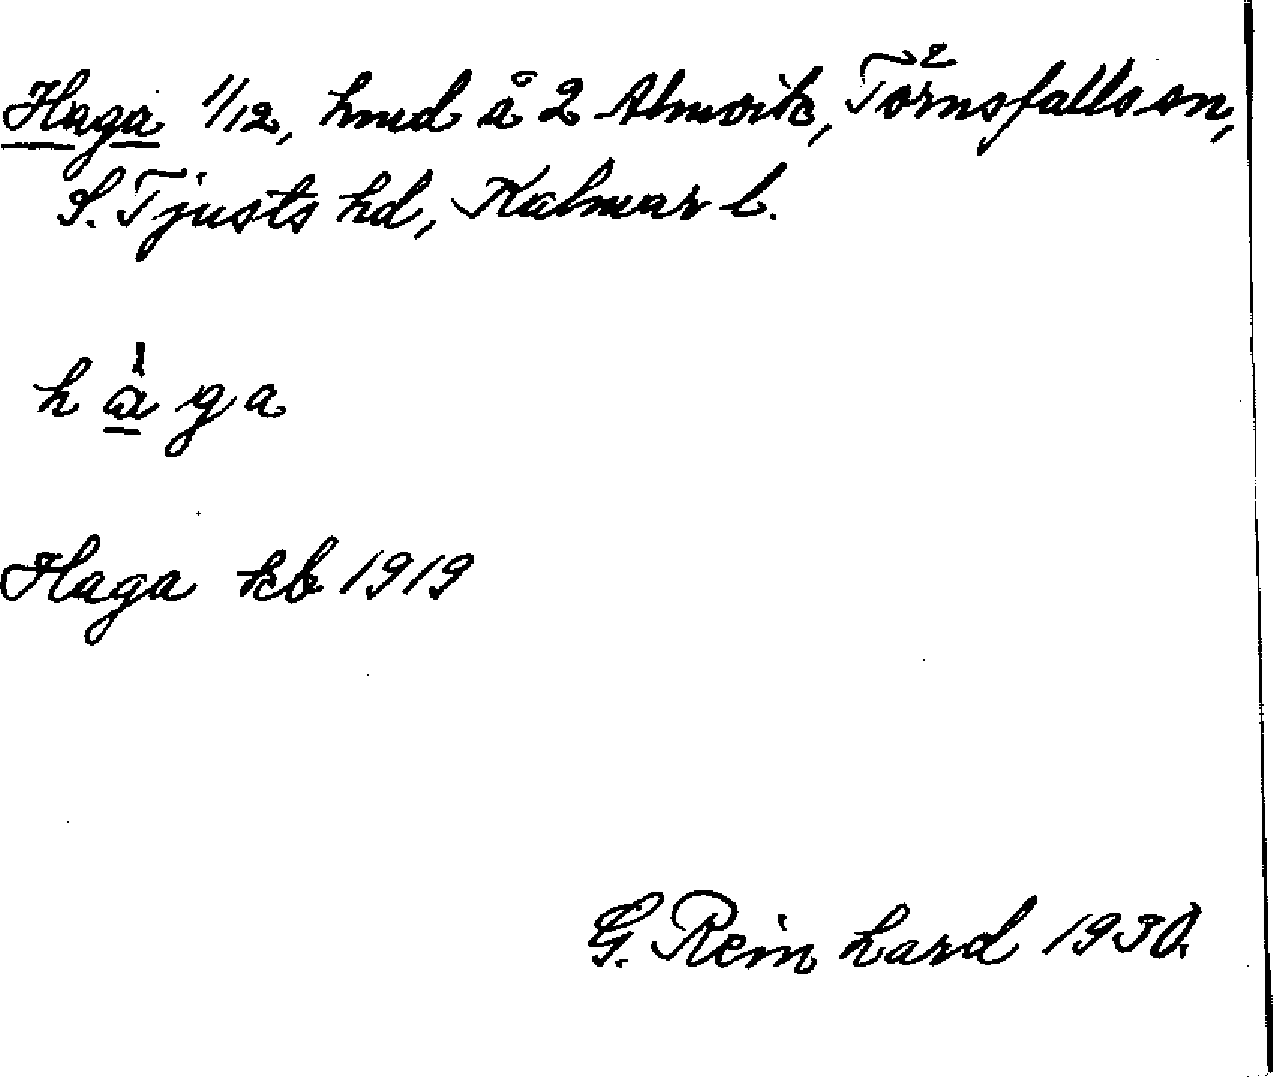 Haga 1/12, hmd å 2 Almvik, Törnsfalls sn,
S. Tjusts hd, Kalmar l.
hàga
Haga kb 1919
G. Reinhard 1930.